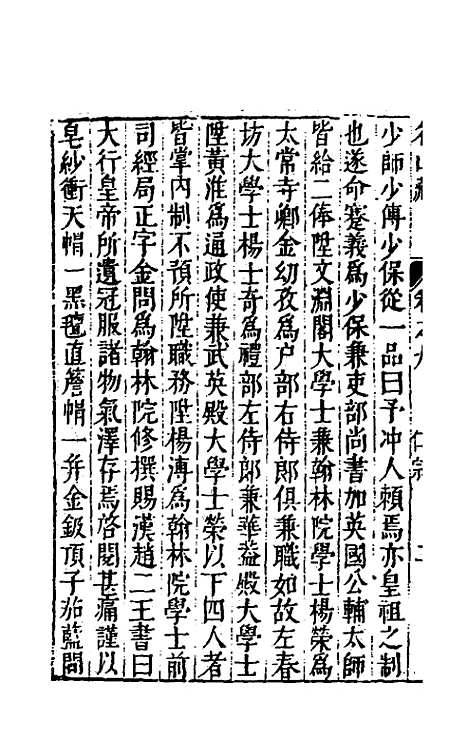 名山藏 卷之九 仁宗
少師少傅少保從一品曰予冲人頼焉亦皇祖之制
也遂命蹇義爲少保兼吏部尚書加英國公輔太師
皆給二俸陞文淵閣大學士兼翰林院學士楊榮爲
太常寺卿金幼孜爲户部右侍郎俱兼職如故左春
坊大學士楊士奇爲禮部左侍郎兼華葢殿大學士
陞黃淮爲通政使兼武英殿大學士榮以下四人者
皆掌內制不預所陞職務陞楊溥爲翰林院學士前
司經局正字金問爲翰林院修撰賜漢趙二王書曰
大行皇帝所遺冠服諸物氣澤存焉啓閱甚痛謹以
皂紗衝天帽一黑氊直簷帽一并金鈒頂子茄藍間